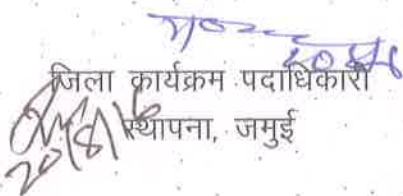 जिला कार्यक्रम पदाधिकारी
स्थापना, जमुई
20/8/16